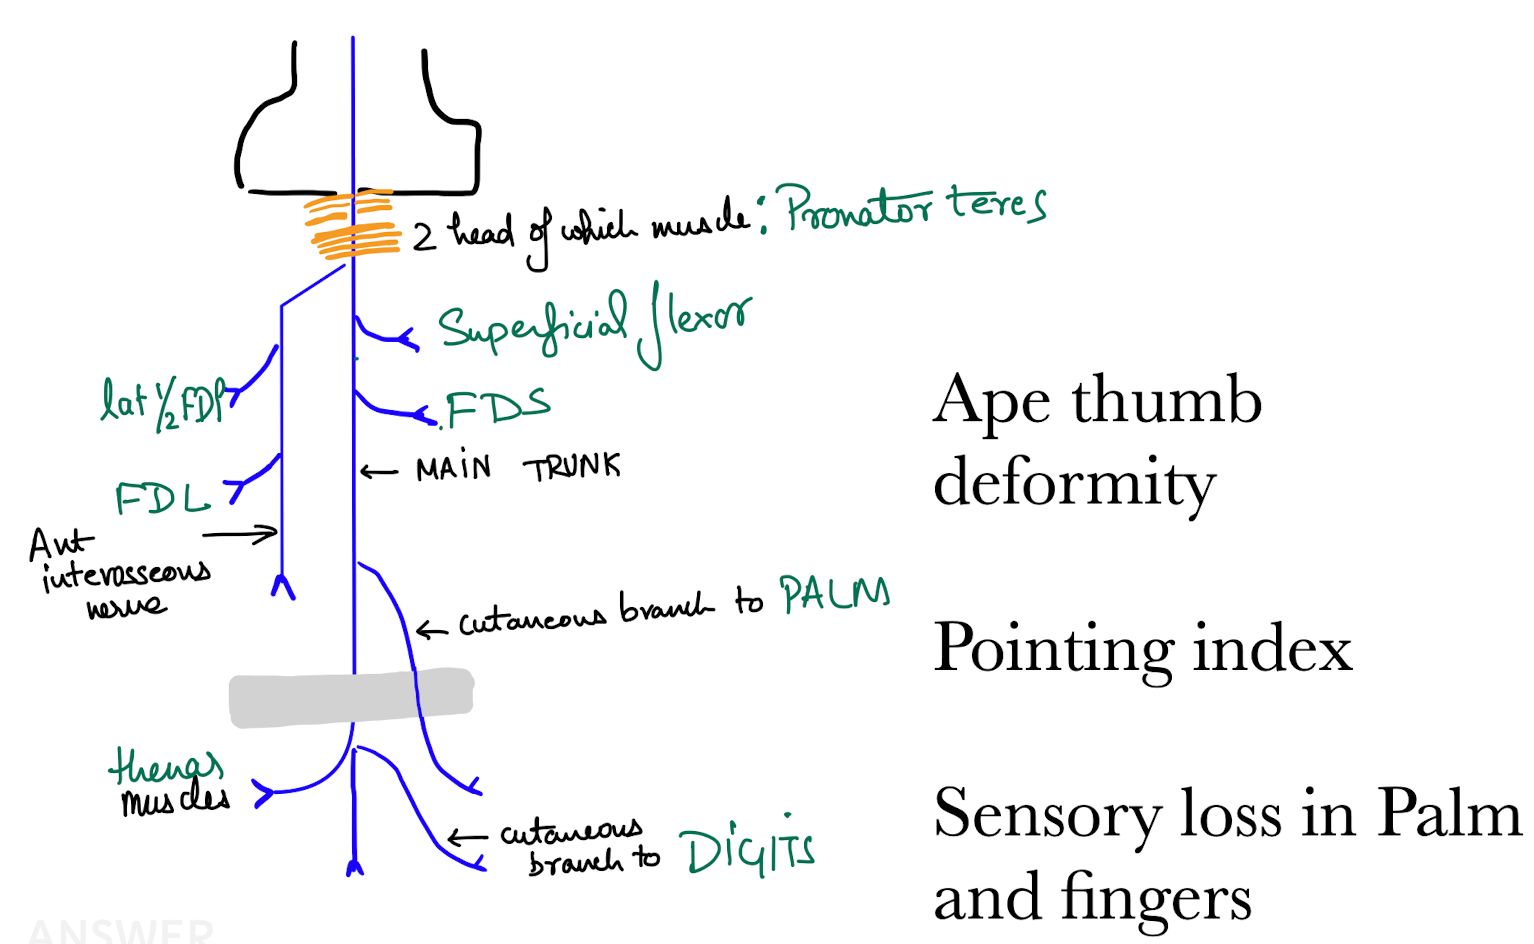 2 head of which muscle: Pronator teres
Superficial flexor
lat 1/2 FDP
FDS
MAIN TRUNK
FDL
Ant
interosseous
nerve
cutaneous branch to PALM
thenar
muscles
cutaneous
branch to DIGITS
Ape thumb
deformity
Pointing index
Sensory loss in Palm
and fingers
ANSWER